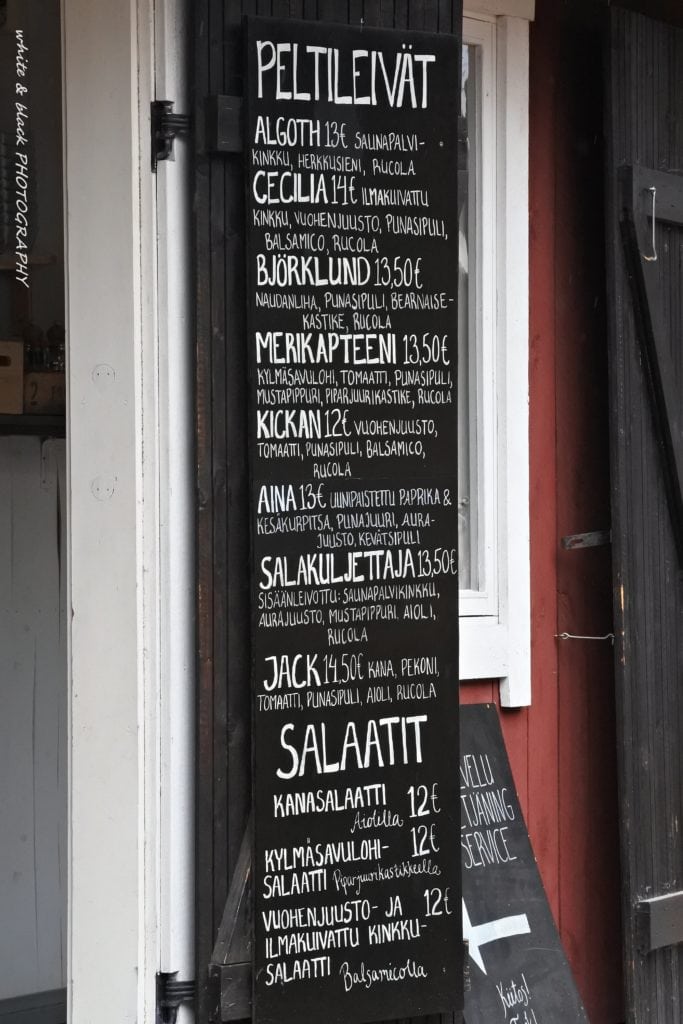 white & black PHOTOGRAPHY
PELTILEIVÄT
ALGOTH 13€ SAUNAPALVI-
KINKKU, HERKKUSIENI, RUCOLA
CECILIA 14€ ILMAKUIVATTU
KINKKU, VUOHENJUUSTO, PUNASIPULI,
BALSAMICO, RUCOLA
BJÖRKLUND 13,50€
NAUDANLIHA, PUNASIPULI, BEARNAISE-
KASTIKE, RUCOLA
MERIKAPTEENI 13,50€
KYLMÄSAVULOHI, TOMAATTI, PUNASIPULI,
MUSTAPIPPURI, PIPARJUURIKASTIKE, RUCOLA
KICKAN 12€ VUOHENJUUSTO,
TOMAATTI, PUNASIPULI, BALSAMICO,
RUCOLA
AINA 13€ UUNIPAISTETTU PAPRIKA &
KESÄKURPITSA, PUNAJUURI, AURA-
JUUSTO, KEVÄTSIPULI
SALAKULJETTAJA 13,50€
SISÄÄNLEIVOTTU: SAUNAPALVIKINKKU,
AURAJUUSTO, MUSTAPIPPURI. AIOLI,
RUCOLA
JACK 14,50€ KANA, PEKONI,
TOMAATTI, PUNASIPULI, AIOLI, RUCOLA
SALAATIT
KANASALAATTI 12€
Aiolilla
KYLMÄSAVULOHI- 12€
SALAATTI Piparjuurikastikkeella
VUOHENJUUSTO- JA 12€
ILMAKUIVATTU KINKKU-
SALAATTI Balsamicolla
VELU
TJÄNING
SERVICE
Kiitos!